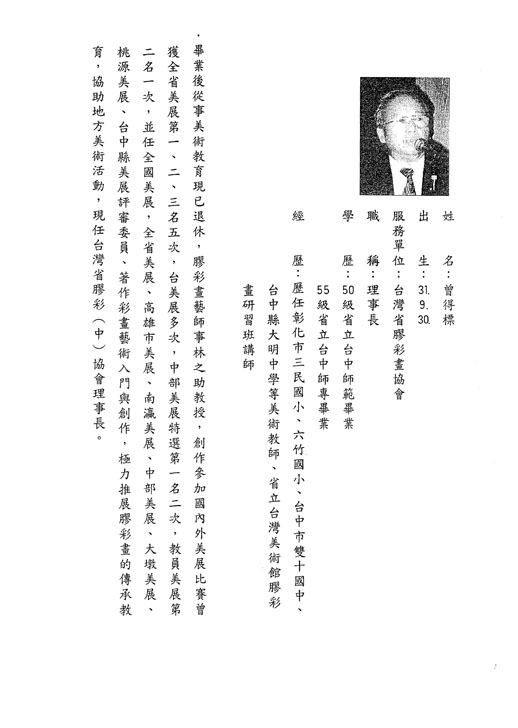 姓　名：曾得標
出　生：31. 9. 30.
服務單位：台灣省膠彩畫協會
職　稱：理事長
學　歷：50級省立台中師範畢業
55級省立台中師專畢業
經　歷：歷任彰化市三民國小、六竹國小、台中市雙十國中、
台中縣大明中學等美術教師、省立台灣美術館膠彩
畫研習班講師
．畢業後從事美術教育現已退休，膠彩畫藝師事林之助教授，創作參加國內外美展比賽曾
獲全省美展第一、二、三名五次，台美展多次，中部美展特選第一名二次，教員美展第
二名一次，並任全國美展，全省美展、高雄市美展、南瀛美展、中部美展、大墩美展、
桃源美展、台中縣美展評審委員、著作彩畫藝術入門與創作，極力推展膠彩畫的傳承教
育，協助地方美術活動，現任台灣省膠彩（中）協會理事長。